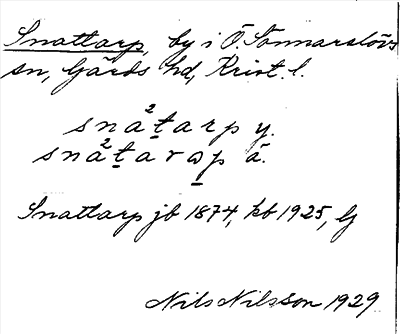 Snattarp, by i Ö. Sönnarslövs
sn, Gärds hd, Krist. l.
sna²tarp y.
sna²tarəp ä.
Snattarp jb 1874, kb 1925, G
Nils Nilsson 1929